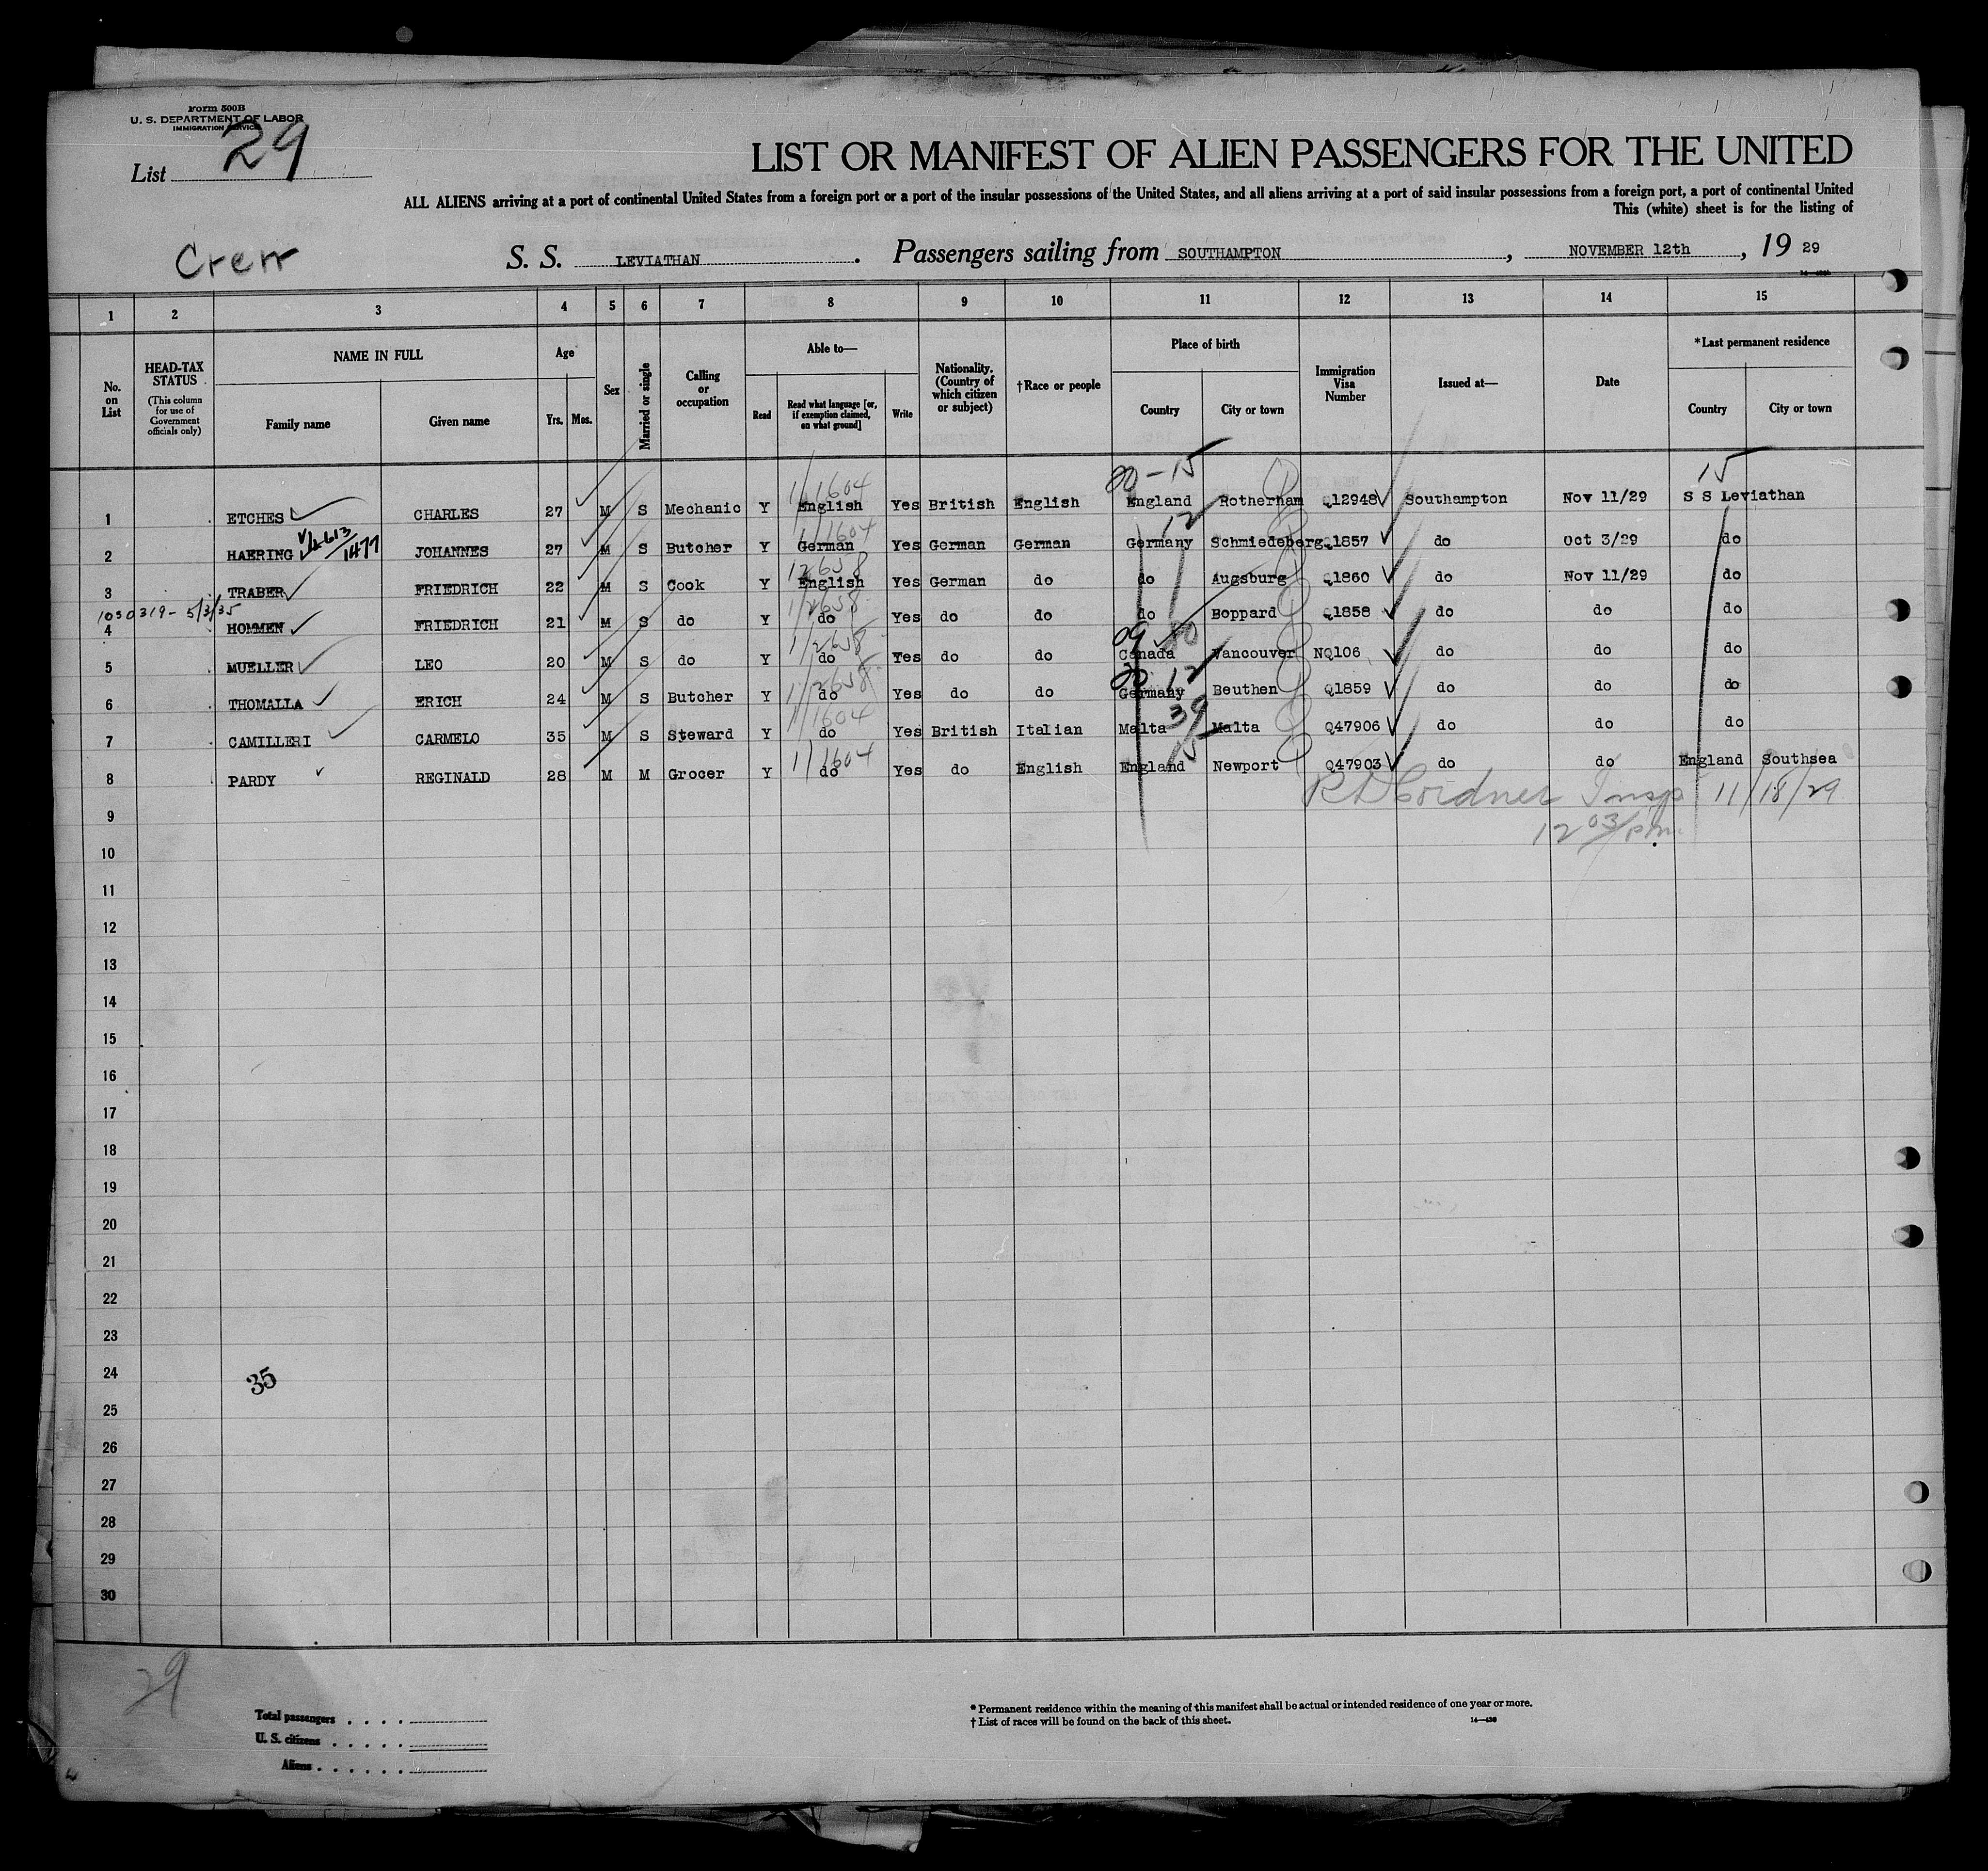 Form 500B
U. S. DEPARTMENT OF LABOR
IMMIGRATION SERVICE
List 29
LIST OR MANIFEST OF ALIEN PASSENGERS FOR THE UNITED
ALL ALIENS arriving at a port of continental United States from a foreign port or a port of the insular possessions of the United States, and all aliens arriving at a port of said insular possessions from a foreign port, a port of continental United
This (white) sheet is for the listing of
Crew
S. S. LEVIATHAN . Passengers sailing from SOUTHAMPTON , NOVEMBER 12th , 19 29
1 2 3 4 5 6 7 8 9 10 11 12 13 14 15
No. on List
HEAD-TAX STATUS (This column for use of Government officials only)
NAME IN FULL
Family name Given name
Age
Yrs. Mos.
Sex
Married or single
Calling or occupation
Able to—
Read Read what language [or, if exemption claimed, on what ground] Write
Nationality. (Country of which citizen or subject)
†Race or people
Place of birth
Country City or town
Immigration Visa Number
Issued at—
Date
*Last permanent residence
Country City or town
20-15 15
1/1604
1 ETCHES CHARLES 27 M S Mechanic Y English Yes British English England Rotherham Q12948 Southampton Nov 11/29 S S Leviathan
1/1604 12
2 HAERING 1477 JOHANNES 27 M S Butcher Y German Yes German German Germany Schmiedeberg Q1857 do Oct 3/29 do
12658
3 TRABER FRIEDRICH 22 M S Cook Y English Yes German do do Augsburg Q1860 do Nov 11/29 do
1050319- 5/3/35 1/2658
4 HOMMEN FRIEDRICH 21 M S do Y do Yes do do do Boppard Q1858 do do do
1/2658 09
5 MUELLER LEO 20 M S do Y do Yes do do Canada Vancouver NQ106 do do do
1/2658 20 12
6 THOMALLA ERICH 24 M S Butcher Y do Yes do do Germany Beuthen Q1859 do do do
1/1604 39
7 CAMILLERI CARMELO 35 M S Steward Y do Yes British Italian Malta Malta Q47906 do do do
1/1604 15
8 PARDY REGINALD 28 M M Grocer Y do Yes do English England Newport Q47903 do do England Southsea
9 Insp 11/18/29
12 03/pm.
10
11
12
13
14
15
16
17
18
19
20
21
22
23
24 35
25
26
27
28
29
30
29
Total passengers
U. S. citizens
Aliens
* Permanent residence within the meaning of this manifest shall be actual or intended residence of one year or more.
† List of races will be found on the back of this sheet.